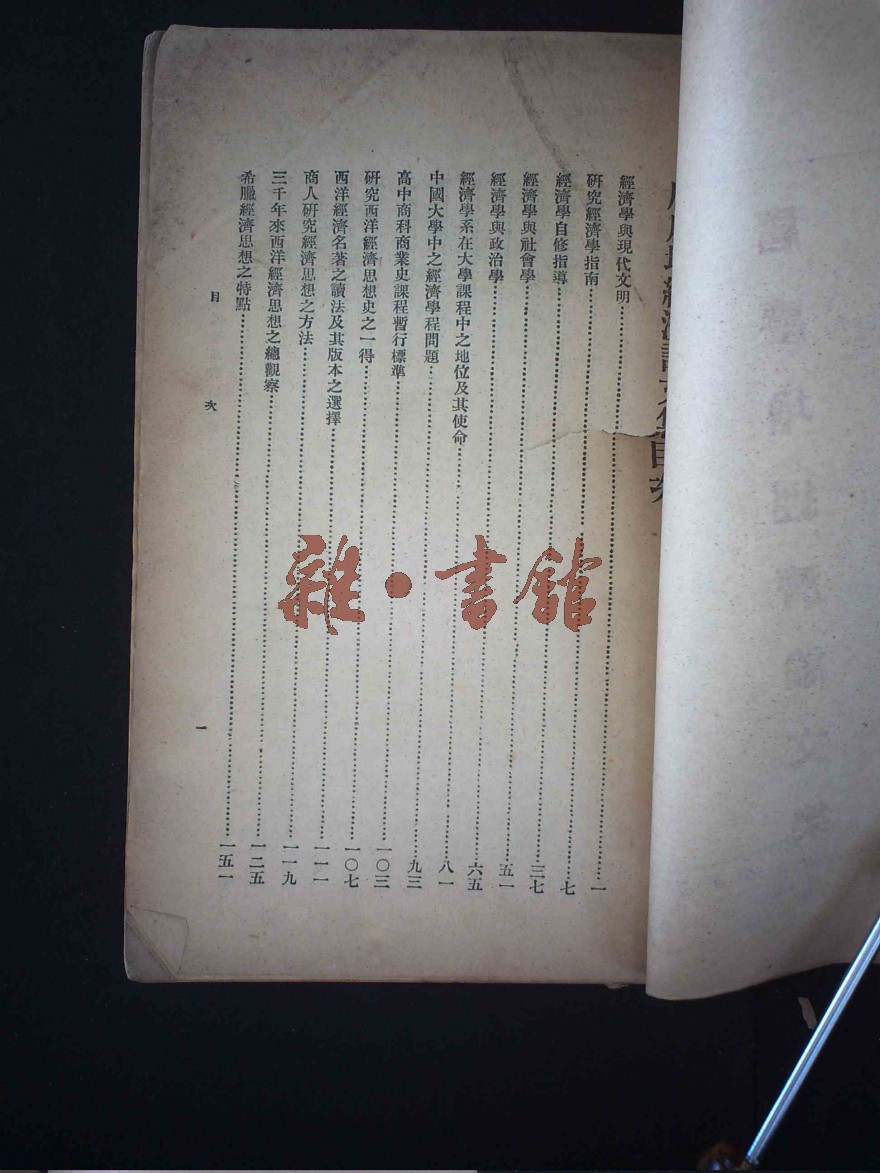 經濟學與現代文明……一
研究經濟學指南……七
經濟學自修指導……三七
經濟學與社會學……五一
經濟學與政治學……六五
經濟學系在大學課程中之地位及其使命……八一
中國大學中之經濟學程問題……九三
高中商科商業史課程暫行標準……一〇三
研究西洋經濟思想史之一得……一〇七
西洋經濟名著之讀法及其版本之選擇……一一一
商人研究經濟思想之方法……一一九
三千年來西洋經濟思想之總觀察……一二五
希臘經濟思想之特點……一五一
目 次
一
雜·書館